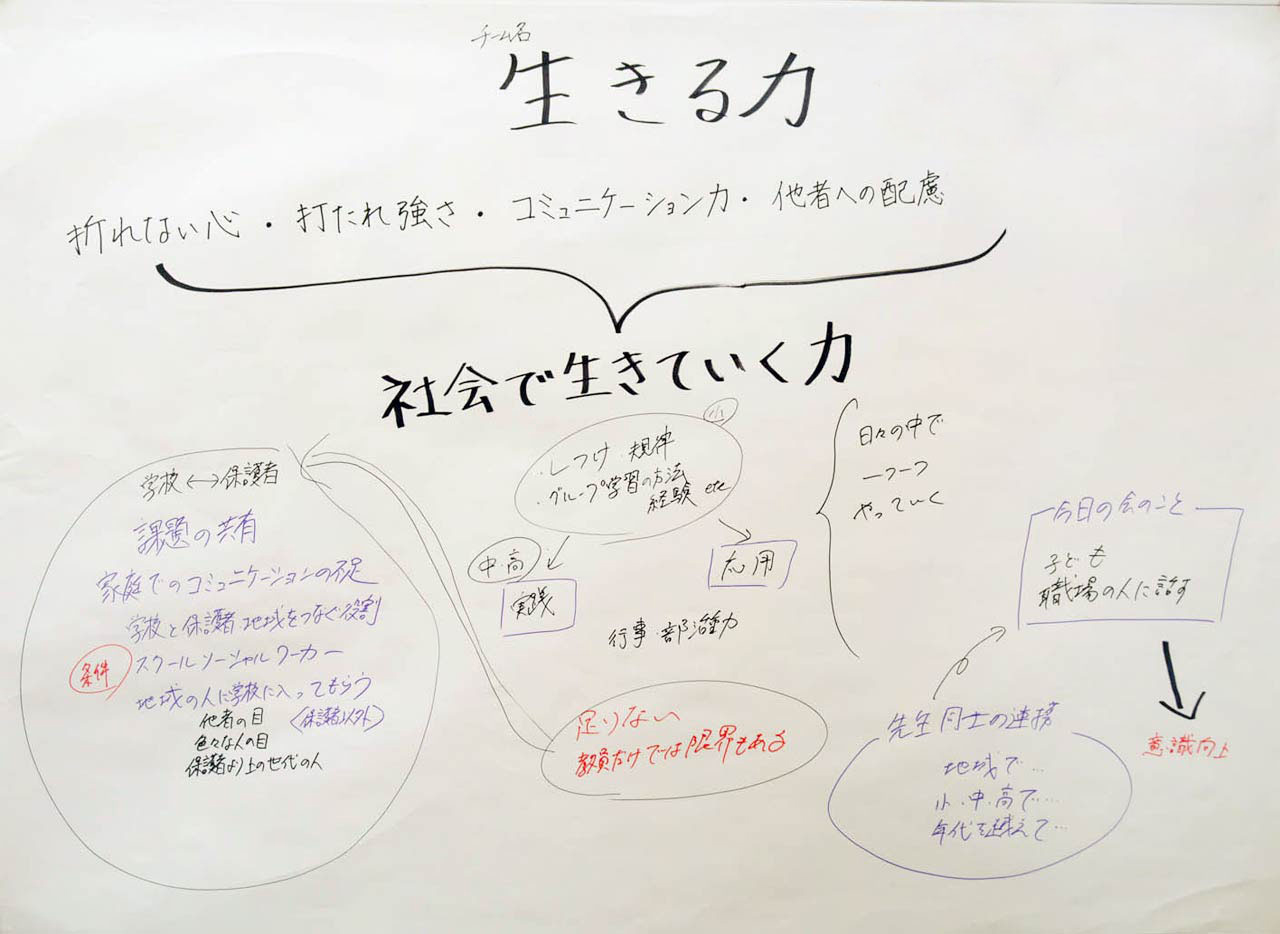 チーム名
生きる力
折れない心・打たれ強さ・コミュニケーション力・他者への配慮
社会で生きていく力
小
・しつけ 規律
・グループ学習の方法
経験 etc
中・高
実践
応用
行事・部活動
日々の中で
一つ一つ
やっていく
学校↔保護者
課題の共有
家庭でのコミュニケーションの不足
学校と保護者・地域をつなぐ役割
条件
スクールソーシャルワーカー
地域の人に学校に入ってもらう
〈保護者以外〉
他者の目
色々な人の目
保護者より上の世代の人
足りない
教員だけでは限界もある
今日の会のこと
子ども
職場の人に話す
意識向上
先生同士の連携
地域で…
小・中・高で…
年代を越えて…